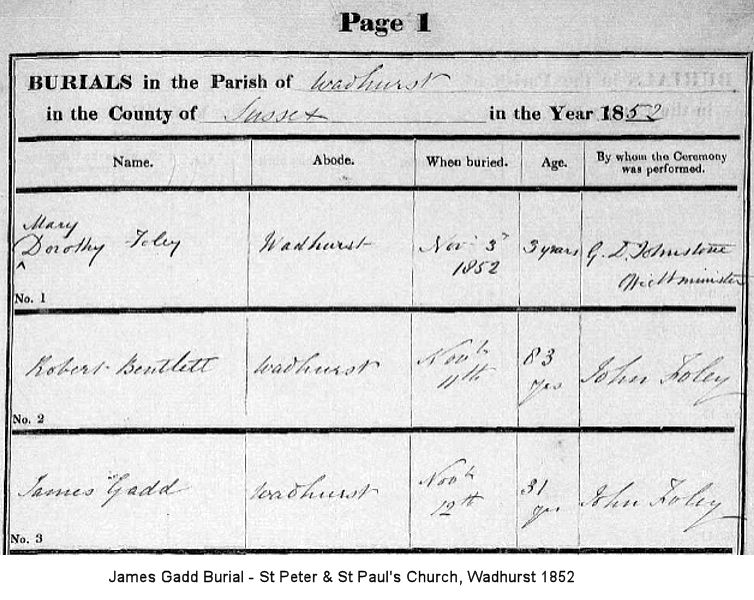 Page 1
BURIALS in the Parish of Wadhurst
in the County of Sussex in the Year 1852
Name. Abode. When buried. Age. By whom the Ceremony was performed.
Mary
^ Dorothy Foley Wadhurst Novr 3d 1852 3 years G. D. Johnstone
No. 1
Robert Bentlett Wadhurst Novbr 11th 83 yrs John Foley
No. 2
James Gadd Wadhurst Novbr 12th 31 yrs John Foley
No. 3
James Gadd Burial - St Peter & St Paul's Church, Wadhurst 1852